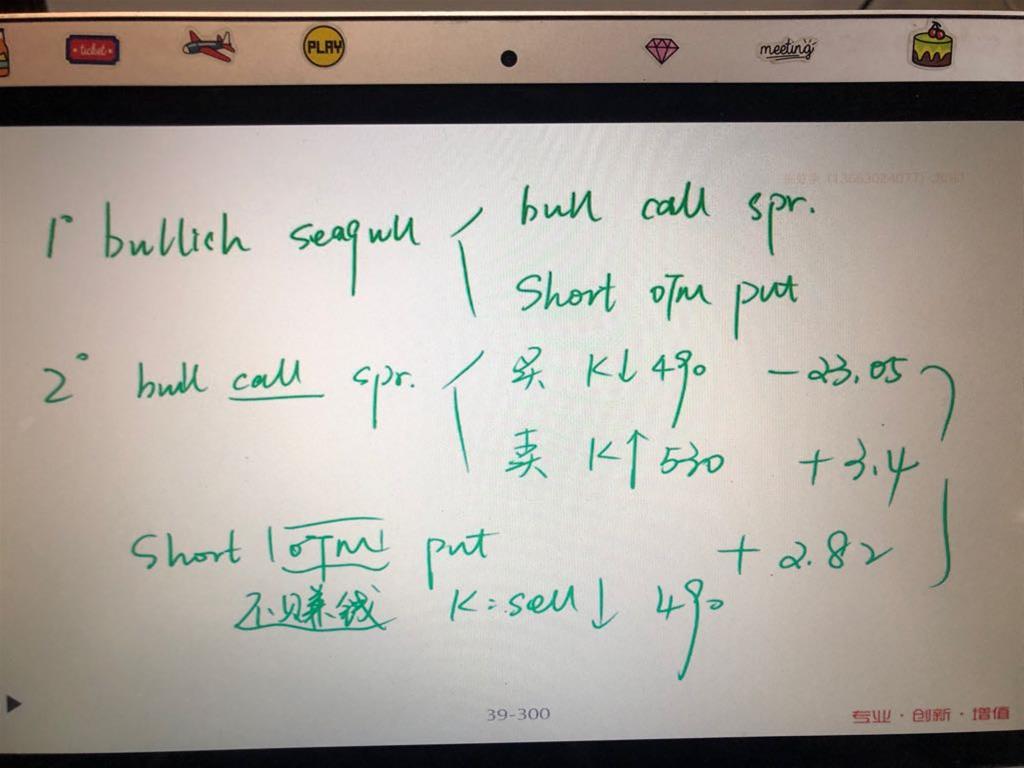 ticket
PLAY
meeting
1° bullich seagull
bull call spr.
Short OTM put
2° bull call spr.
买 K↓ 490 -23.05
卖 K↑ 530 +3.4
Short OTM put +2.82
不贝赚钱 K: sell ↓ 490
39-300
专业·创新·增值